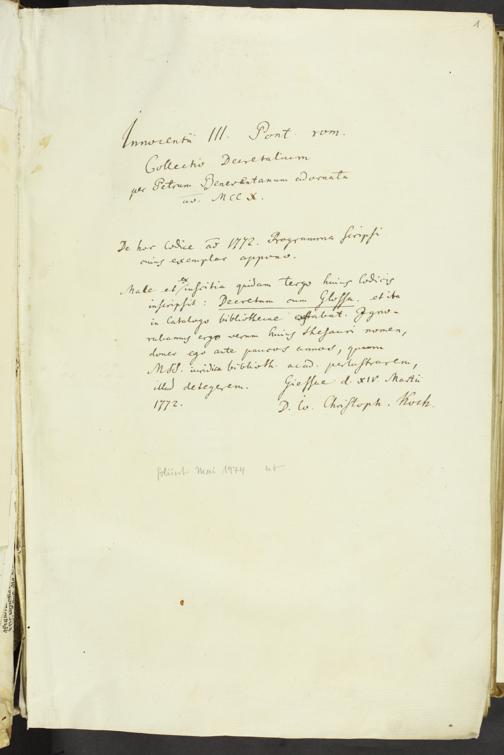 1
Innocentii III. Pont. rom.
Collectio Decretalium
per Petrum Beneventanum adornata
ao. MCCX.
De hoc Codice ao 1772. Programma scripsi
cuius exemplar appono.
Male et ex inscitia quidam tergo huius Codicis
inscripsit: Decretum cum Glossa. et ita
in Catalogo bibliothecae extabat. Igno-
rabamus ergo verum huius thesauri nomen,
donec ego ante paucos annos, quum
MSS. iuridica biblioth. acad. perlustrarem,
illud detegerem. Giessae d. XIV Martii
1772. D. Io. Christoph. Koch.
foliiert Mai 1974